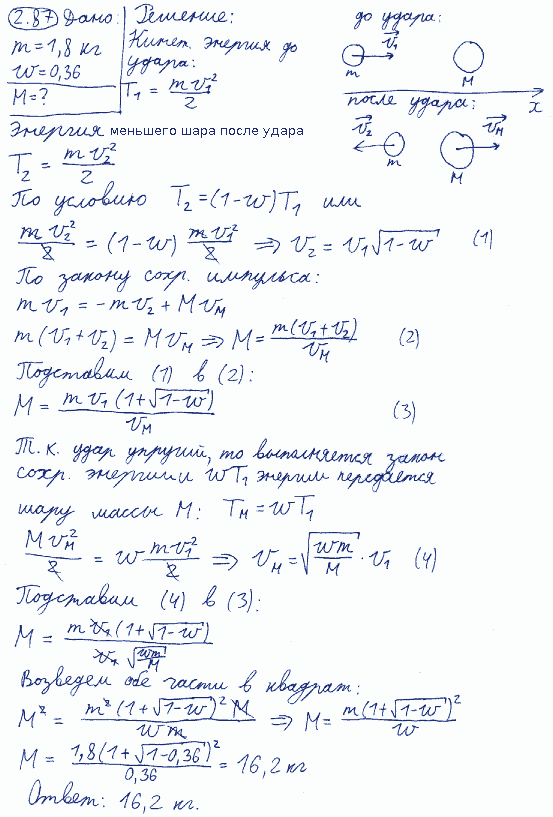 2.87 Дано: Решение:
m = 1,8 кг
w = 0,36
M = ?
Кинет. энергия до
удара:
T₁ = mv₁²/2
до удара:
v₁
m
M
после удара:
x
v₂
vм
m
M
Энергия меньшего шара после удара
T₂ = mv₂²/2
По условию T₂ = (1-w)T₁ или
mv₂²/2 = (1-w) mv₁²/2 ⇒ v₂ = v₁√(1-w) (1)
По закону сохр. импульса:
mv₁ = -mv₂ + Mvм
m(v₁+v₂) = Mvм ⇒ M = m(v₁+v₂)/vм (2)
Подставим (1) в (2):
M = mv₁(1+√(1-w))/vм (3)
Т. к. удар упругий, то выполняется закон
сохр. энергии и wT₁ энергии передается
шару массы M: Tм = wT₁
Mvм²/2 = w mv₁²/2 ⇒ vм = √(wm/M) · v₁ (4)
Подставим (4) в (3):
M = mv₁(1+√(1-w))/(v₁√(wm/M))
Возведем обе части в квадрат:
M² = m²(1+√(1-w))²M/(wm) ⇒ M = m(1+√(1-w))²/w
M = 1,8(1+√(1-0,36))²/0,36 = 16,2 кг
Ответ: 16,2 кг.